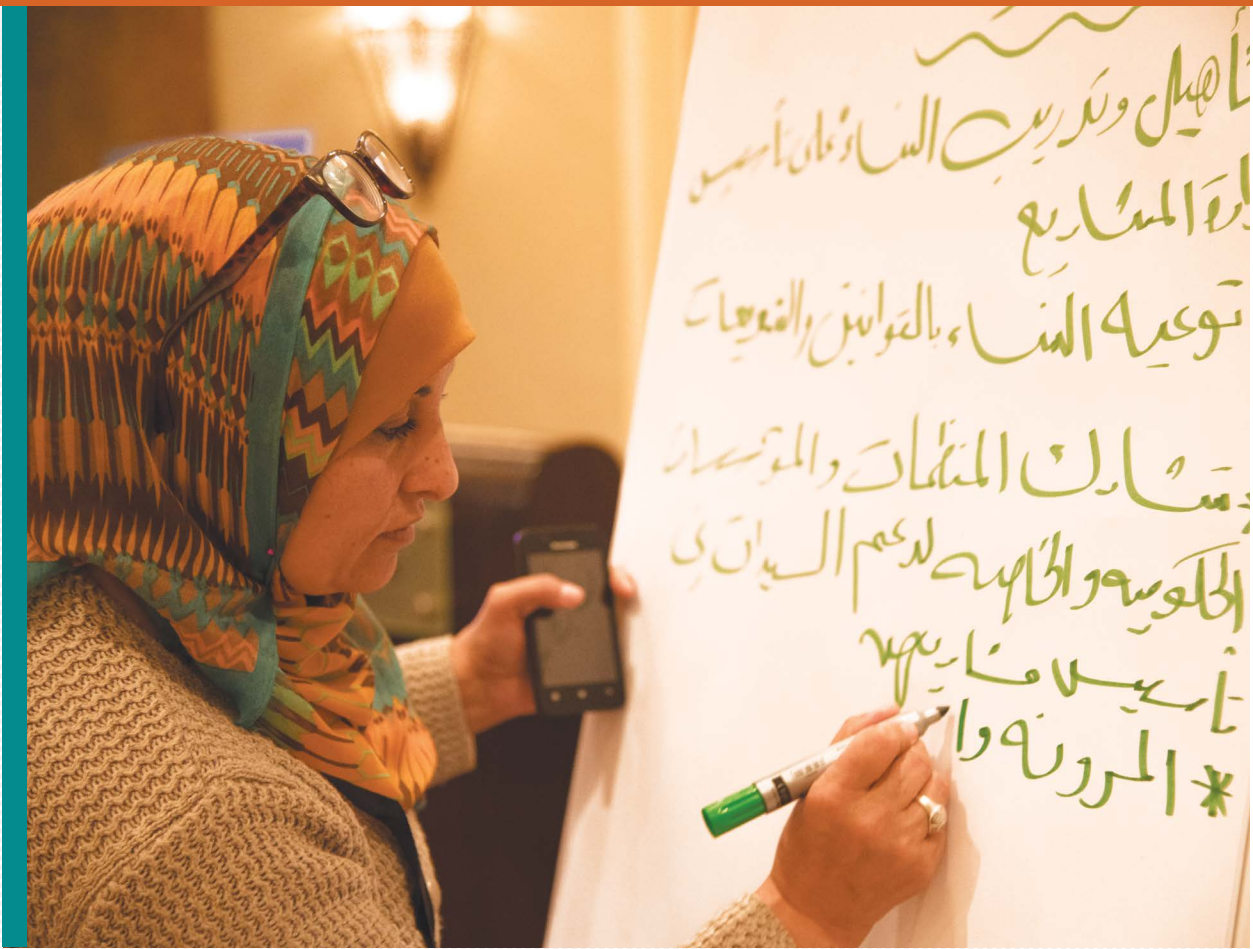 تأهيل وتدريب النساء على تأسيس
المشاريع
توعيه النساء بالقوانين والتشريعات
تشارك المنظمات والمؤسسات
الحكوميه والخاصه لدعم السيدات في
تأسيس مشاريعهم
* المرونه وا